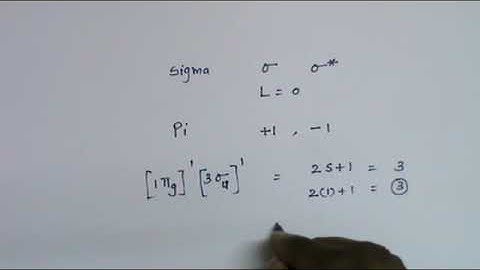 Sigma σ σ*
L = 0
Pi +1 , -1
[1πg]¹ [3σu]¹ = 2S+1 = 3
2(1)+1 = 3